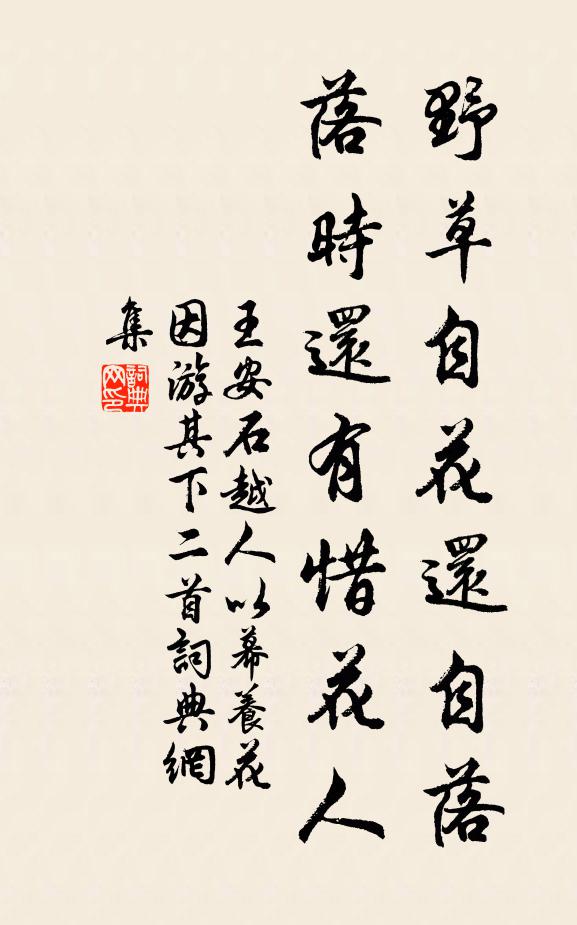 野草自花還自落
落時還有惜花人
王安石越人以幕養花
因游其下二首詞典網
集
詞典
网印